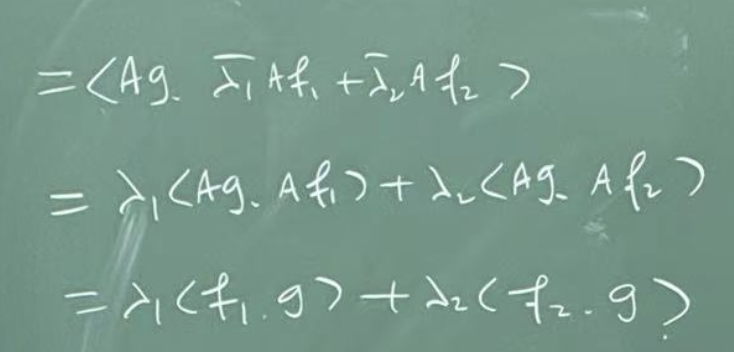 =<Ag. λ̄₁Af₁+λ̄₂Af₂>
=λ₁<Ag. Af₁>+λ₂<Ag. Af₂>
=λ₁<f₁.g>+λ₂<f₂.g>